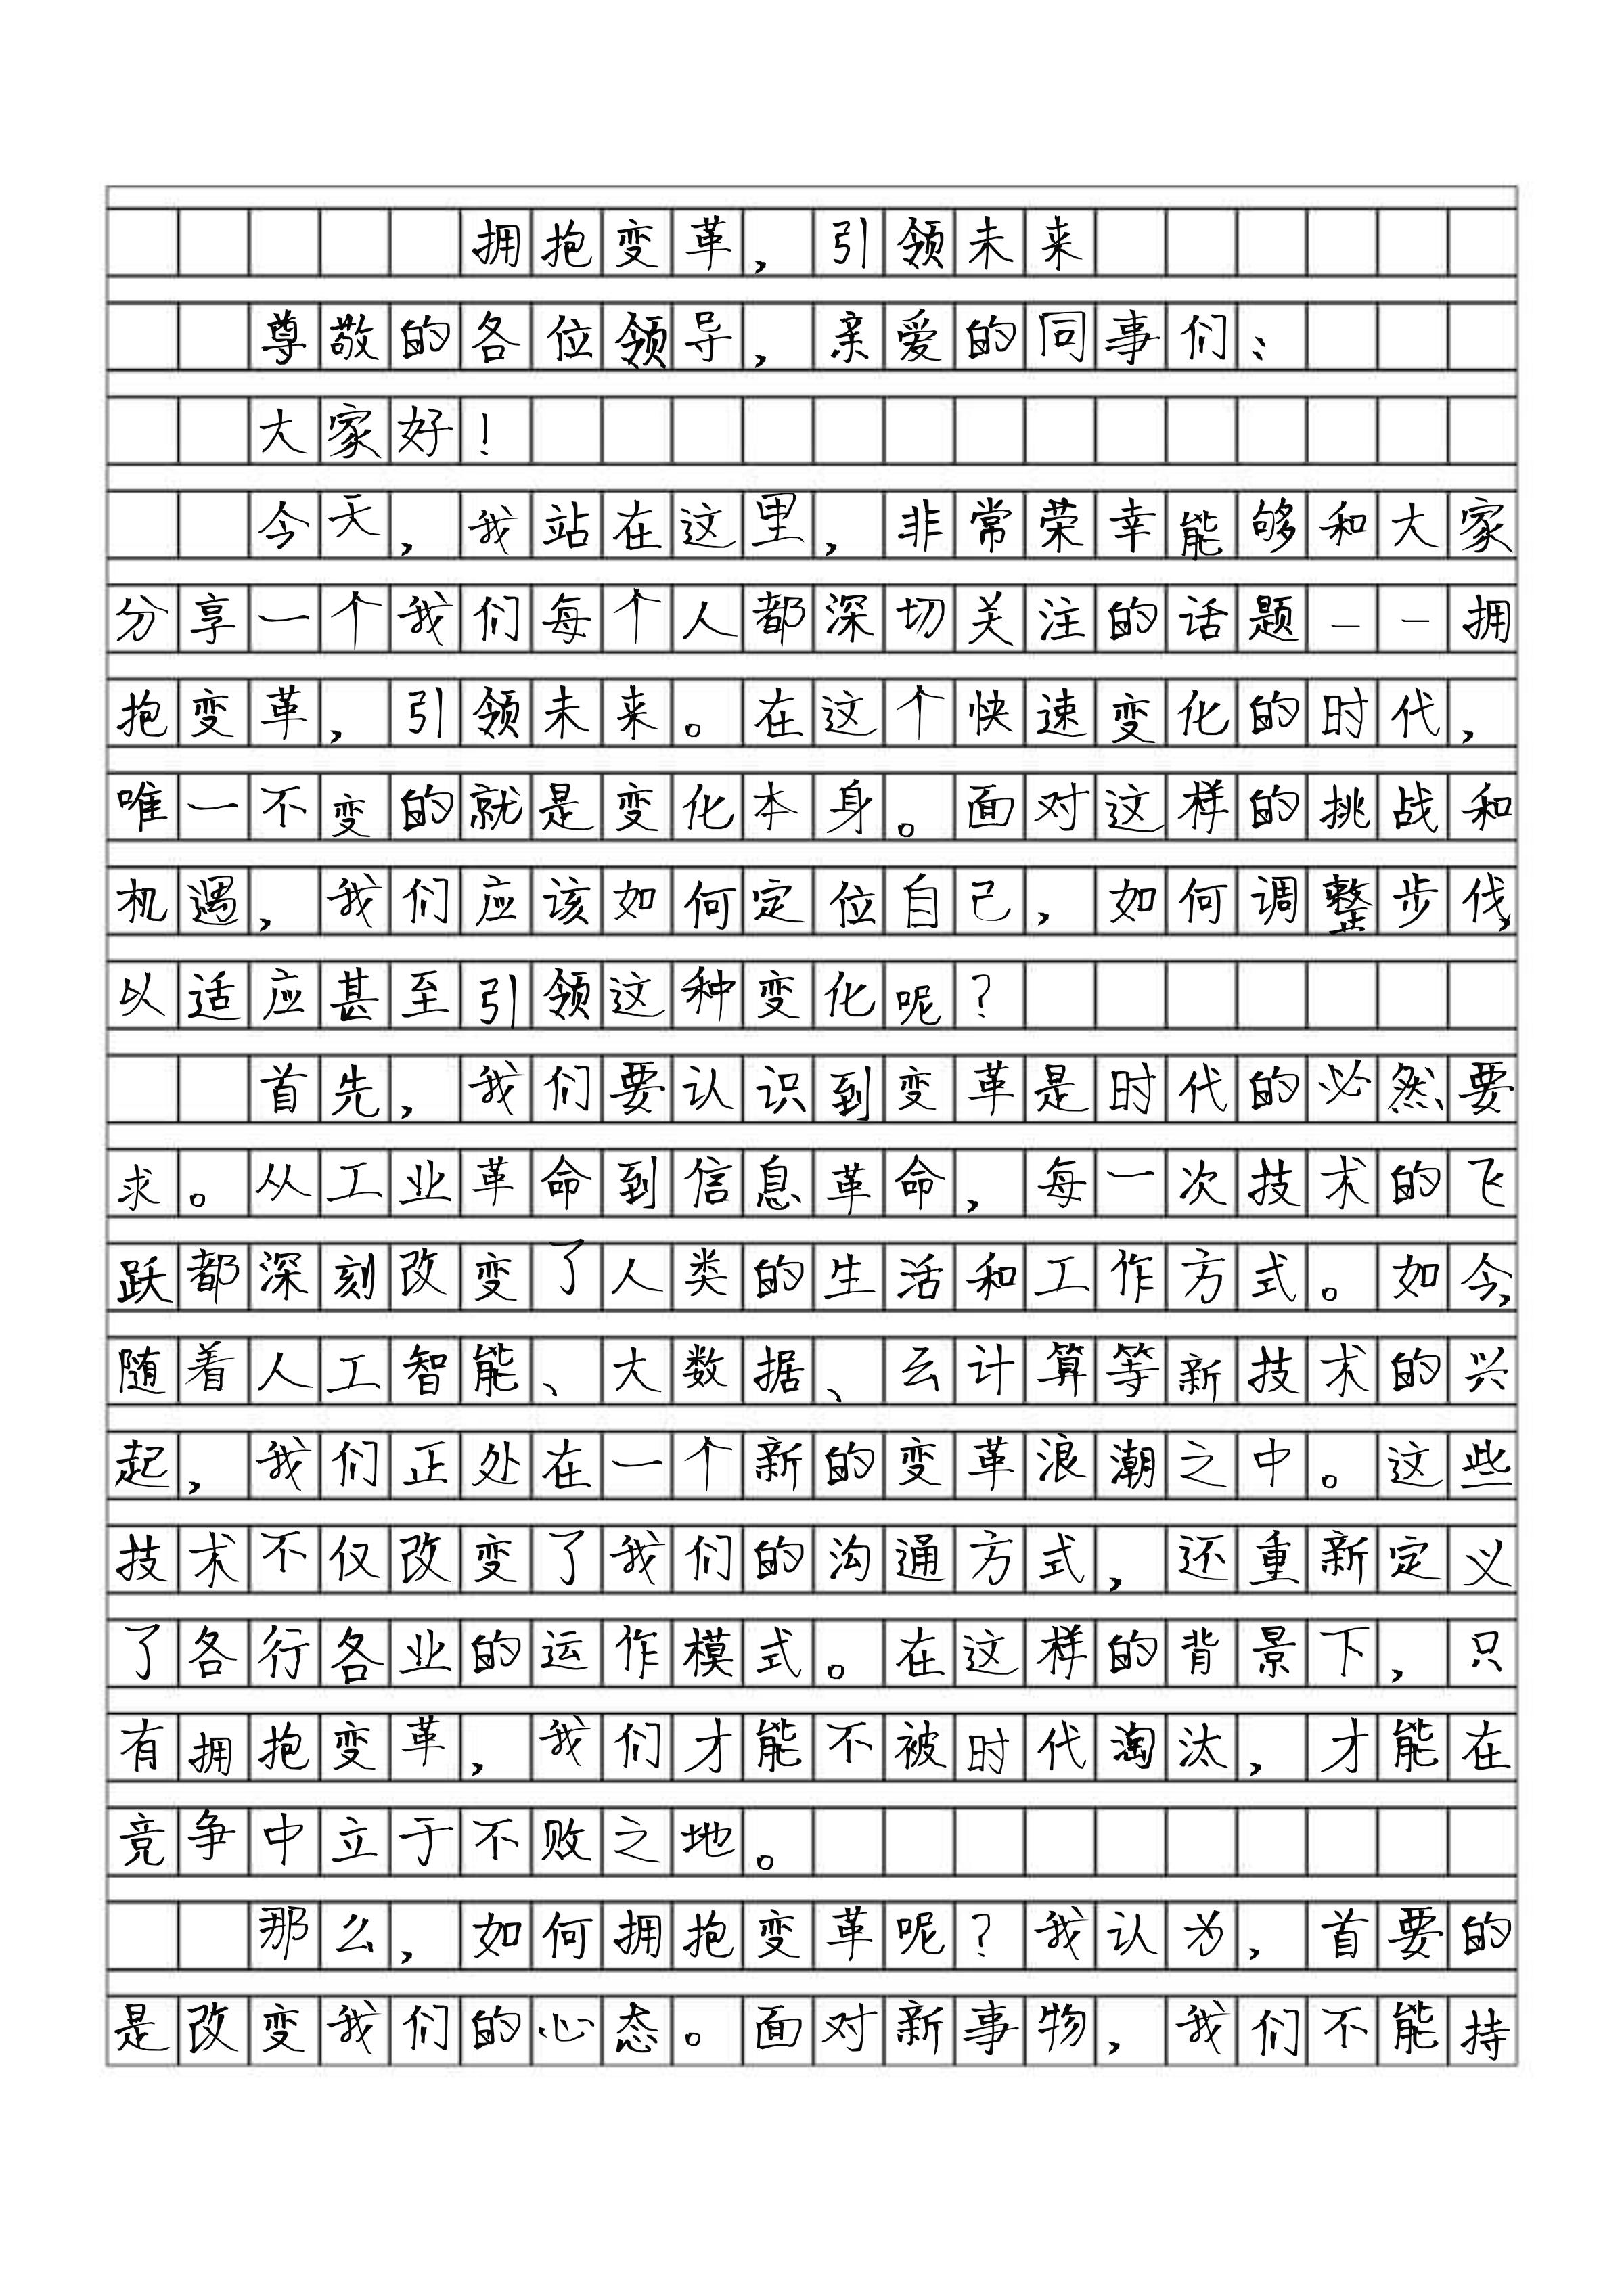 拥抱变革，引领未来
尊敬的各位领导，亲爱的同事们：
大家好！
今天，我站在这里，非常荣幸能够和大家
分享一个我们每个人都深切关注的话题——拥
抱变革，引领未来。在这个快速变化的时代，
唯一不变的就是变化本身。面对这样的挑战和
机遇，我们应该如何定位自己，如何调整步伐，
以适应甚至引领这种变化呢？
首先，我们要认识到变革是时代的必然要
求。从工业革命到信息革命，每一次技术的飞
跃都深刻改变了人类的生活和工作方式。如今，
随着人工智能、大数据、云计算等新技术的兴
起，我们正处在一个新的变革浪潮之中。这些
技术不仅改变了我们的沟通方式，还重新定义
了各行各业的运作模式。在这样的背景下，只
有拥抱变革，我们才能不被时代淘汰，才能在
竞争中立于不败之地。
那么，如何拥抱变革呢？我认为，首要的
是改变我们的心态。面对新事物，我们不能持